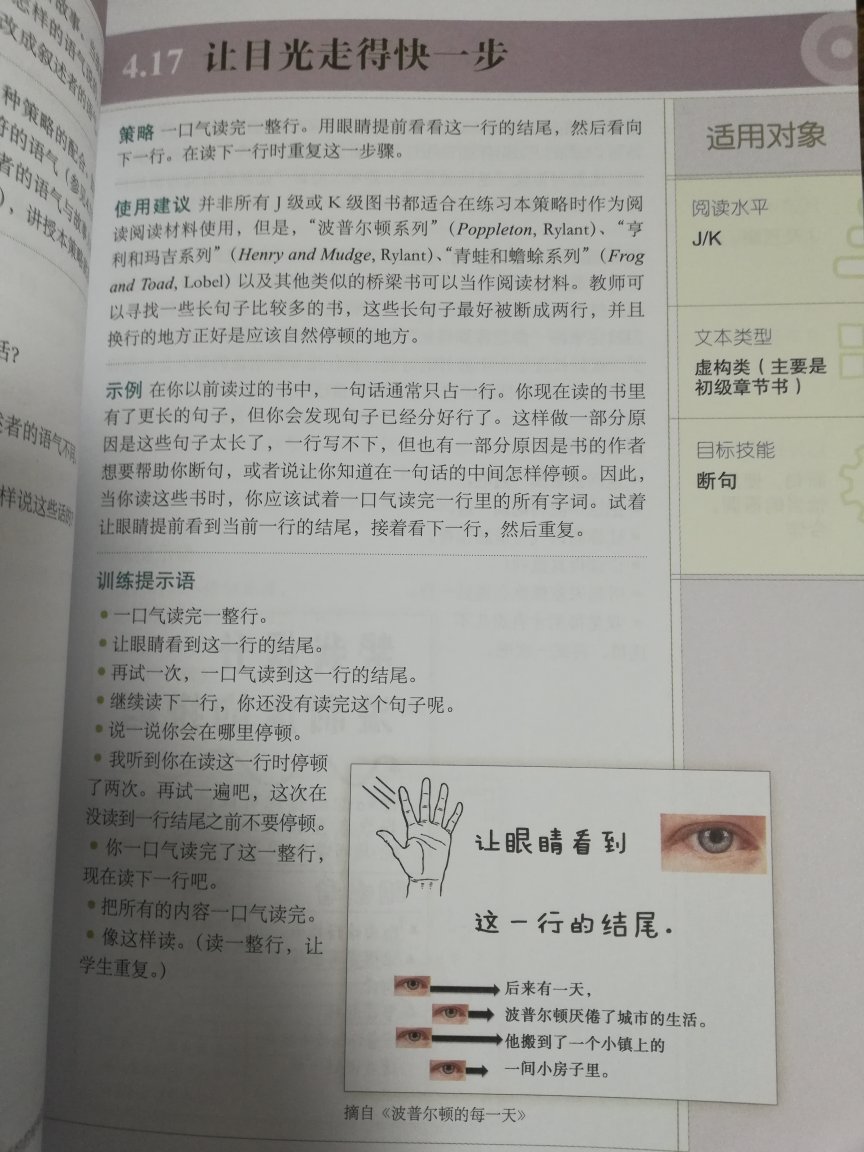 4.17 让目光走得快一步
策略 一口气读完一整行。用眼睛提前看看这一行的结尾，然后看向
下一行。在读下一行时重复这一步骤。
使用建议 并非所有 J 级或 K 级图书都适合在练习本策略时作为阅
读阅读材料使用，但是，“波普尔顿系列”（Poppleton, Rylant）、“亨
利和玛吉系列”（Henry and Mudge, Rylant）、“青蛙和蟾蜍系列”（Frog
and Toad, Lobel）以及其他类似的桥梁书可以当作阅读材料。教师可
以寻找一些长句子比较多的书，这些长句子最好被断成两行，并且
换行的地方正好是应该自然停顿的地方。
示例 在你以前读过的书中，一句话通常只占一行。你现在读的书里
有了更长的句子，但你会发现句子已经分好行了。这样做一部分原
因是这些句子太长了，一行写不下，但也有一部分原因是书的作者
想要帮助你断句，或者说让你知道在一句话的中间怎样停顿。因此，
当你读这些书时，你应该试着一口气读完一行里的所有字词。试着
让眼睛提前看到当前一行的结尾，接着看下一行，然后重复。
训练提示语
• 一口气读完一整行。
• 让眼睛看到这一行的结尾。
• 再试一次，一口气读到这一行的结尾。
• 继续读下一行，你还没有读完这个句子呢。
• 说一说你会在哪里停顿。
• 我听到你在读这一行时停顿
了两次。再试一遍吧，这次在
没读到一行结尾之前不要停顿。
• 你一口气读完了这一整行，
现在读下一行吧。
• 把所有的内容一口气读完。
• 像这样读。（读一整行，让
学生重复。）
让眼睛看到
这一行的结尾.
后来有一天，
波普尔顿厌倦了城市的生活。
他搬到了一个小镇上的
一间小房子里。
摘自《波普尔顿的每一天》
适用对象
阅读水平
J/K
文本类型
虚构类（主要是
初级章节书）
目标技能
断句